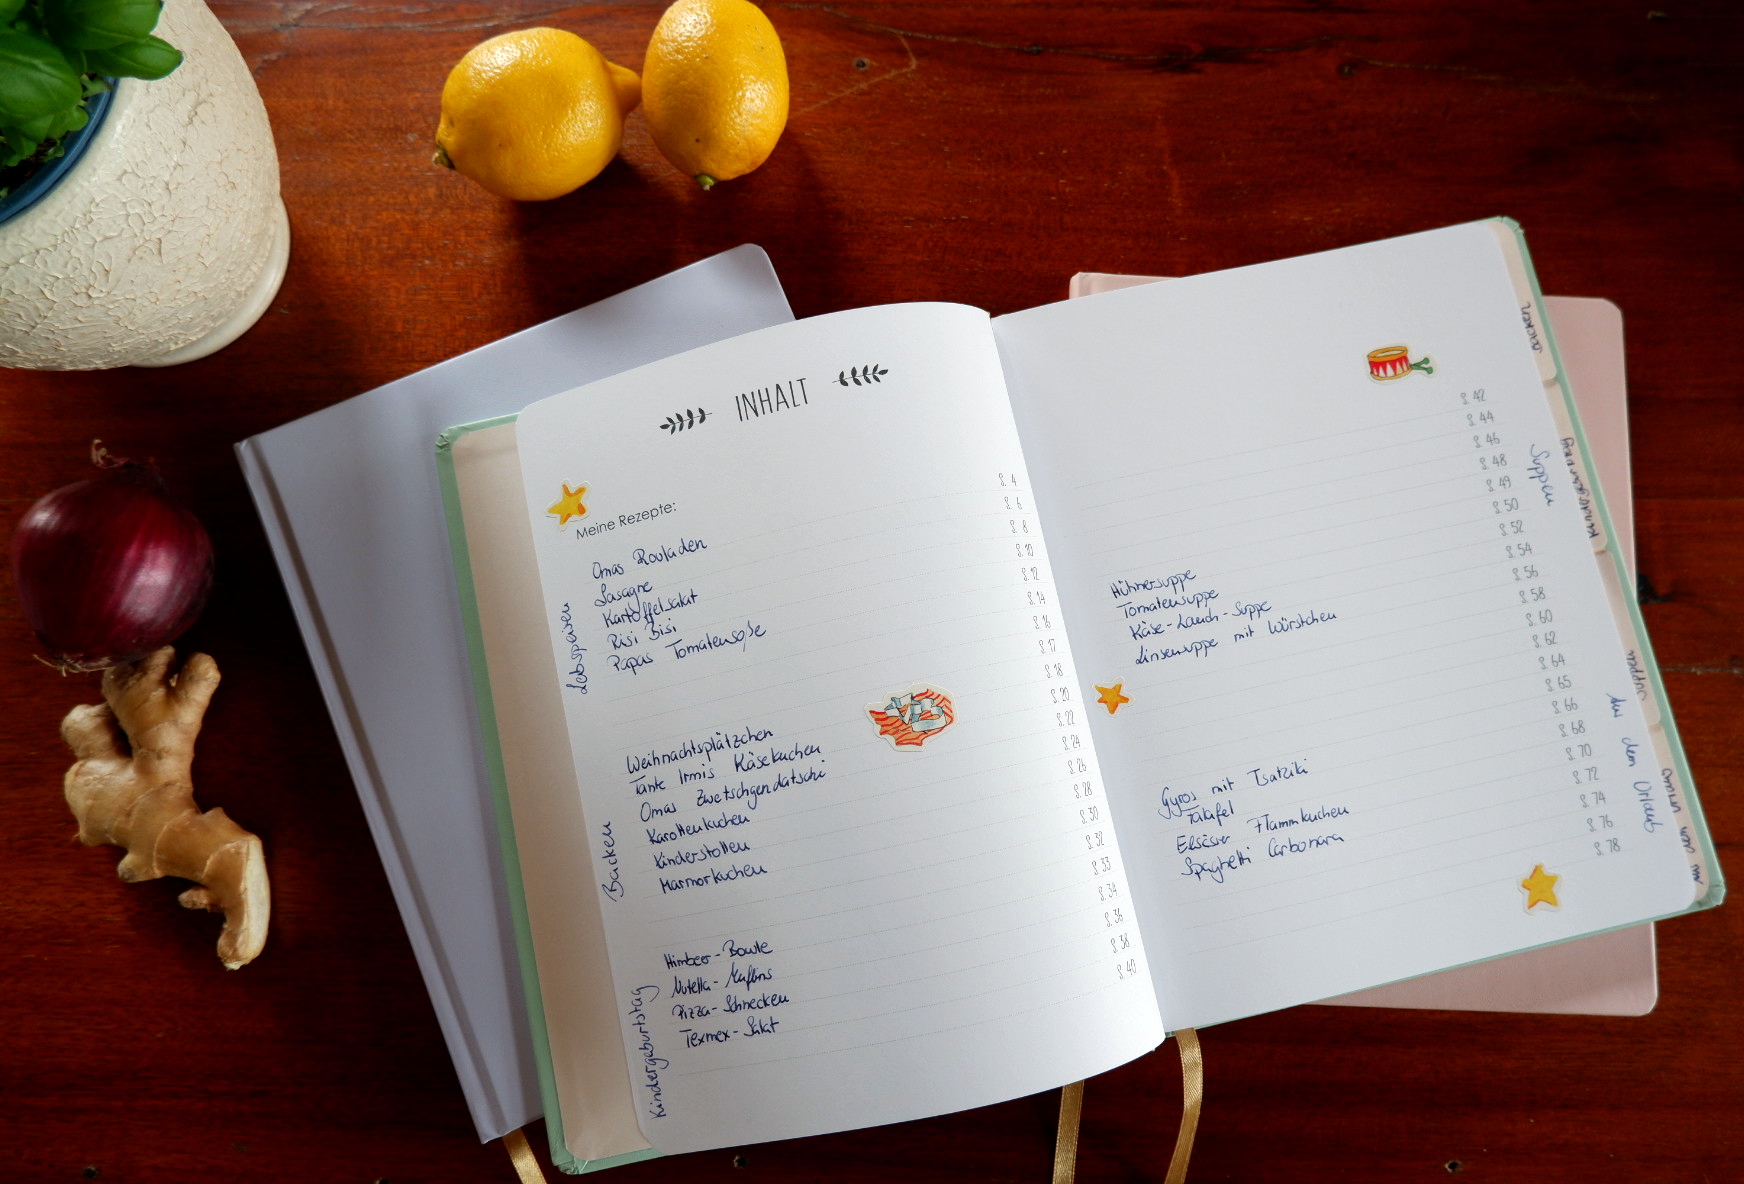 INHALT
Meine Rezepte:
Leibspeisen
Omas Rouladen
Lasagne
Kartoffelsalat
Risi Bisi
Papas Tomatensoße
Backen
Weihnachtsplätzchen
Tante Irmis Käsekuchen
Omas Zwetschgendatschi
Karottenkuchen
Kinderstollen
Marmorkuchen
Kindergeburtstag
Himbeer-Bowle
Nutella-Muffins
Pizza-Schnecken
Texmex-Salat
S. 4
S. 6
S. 8
S. 10
S. 12
S. 14
S. 16
S. 17
S. 18
S. 20
S. 22
S. 24
S. 26
S. 28
S. 30
S. 32
S. 33
S. 34
S. 36
S. 38
S. 40
Suppen
Hühnersuppe
Tomatensuppe
Käse-Lauch-Suppe
Linsensuppe mit Würstchen
Aus dem Urlaub
Gyros mit Tsatziki
Falafel
Elsässer Flammkuchen
Spaghetti Carbonara
S. 42
S. 44
S. 46
S. 48
S. 49
S. 50
S. 52
S. 54
S. 56
S. 58
S. 60
S. 62
S. 64
S. 65
S. 66
S. 68
S. 70
S. 72
S. 74
S. 76
S. 78
Backen
Kindergeburtstag
Suppen
Aus dem Urlaub